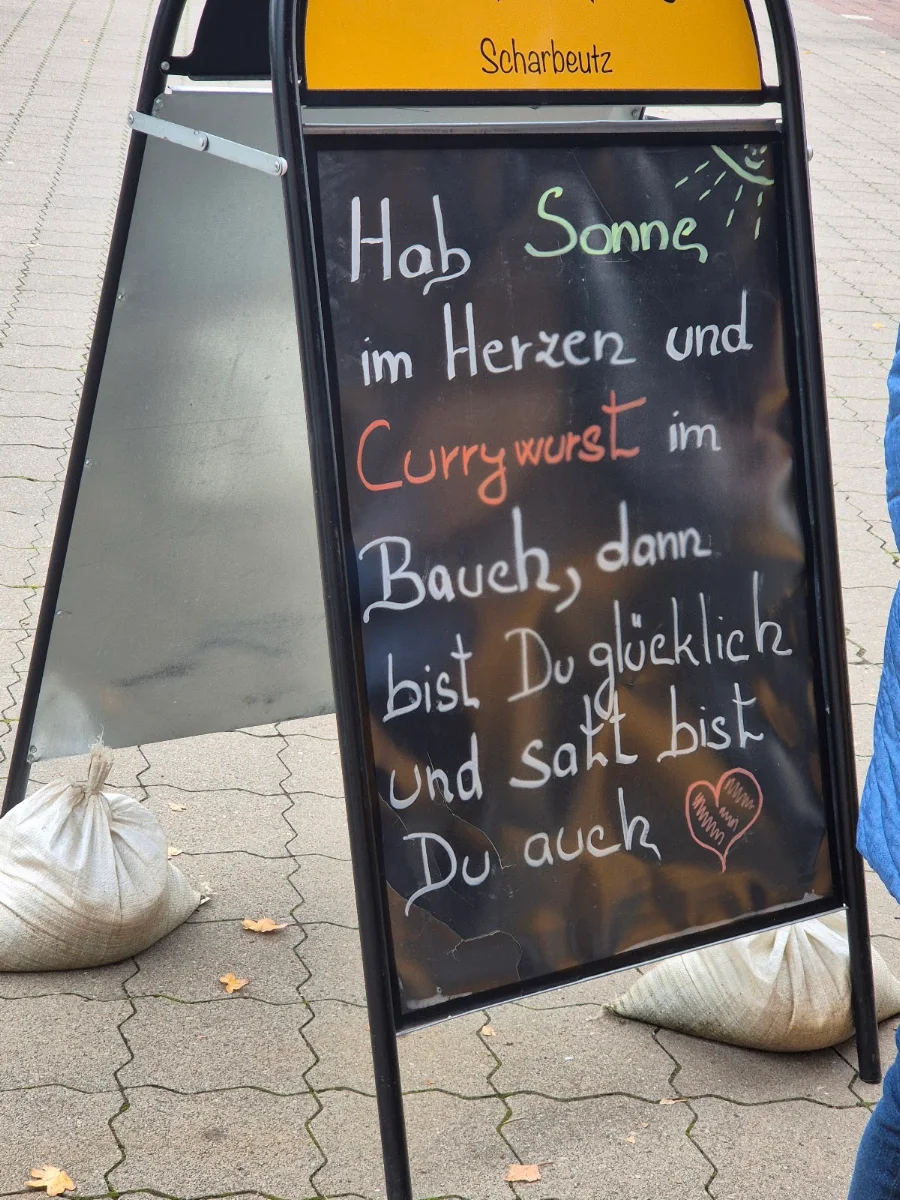 Scharbeutz
Hab Sonne
im Herzen und
Currywurst im
Bauch, dann
bist Du glücklich
und satt bist
Du auch